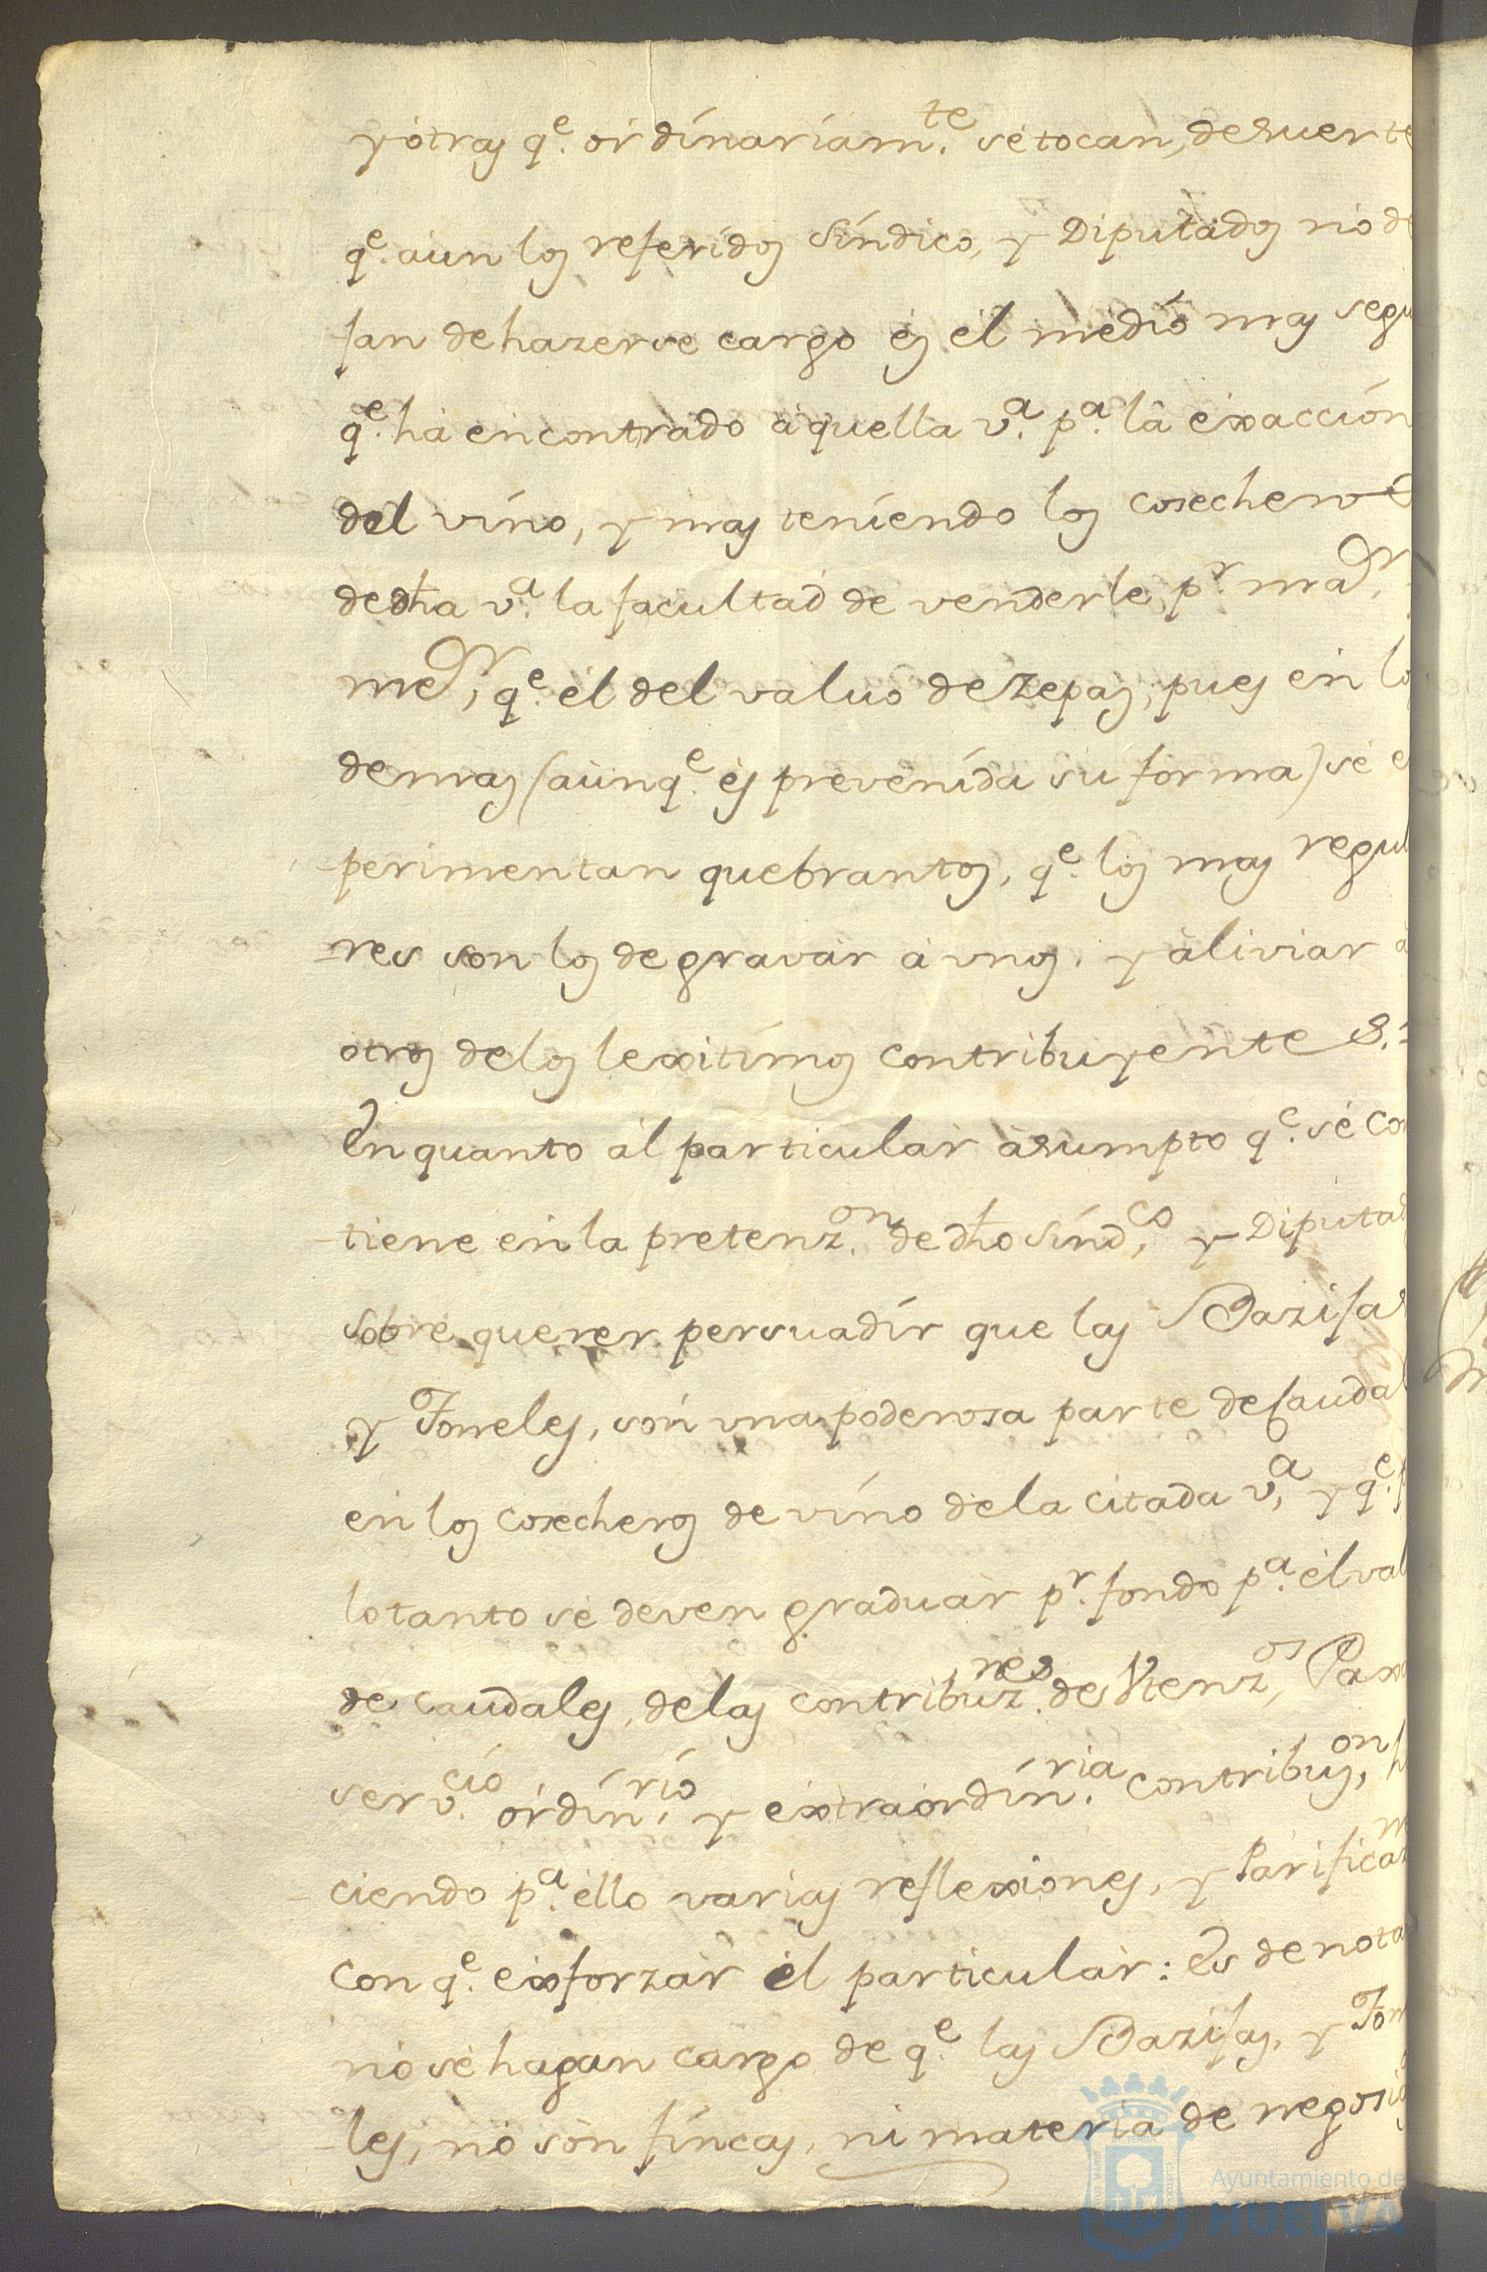 y otras q.e ordinariam.te se tocan, desuerte
q.e aun los referidos Síndico, y Diputados no de
jan de hazerse cargo es el medio mas segu
q.e ha encontrado aquella v.a p.a la exacción
del vino, y mas teniendo los cosecheros
de dha v.a la facultad de venderle p.r ma.r
me.r, q.e el del valuo de Zepas, pues en lo
demas (aunq.e es prevenida su forma) se e
perimentan quebrantos, q.e los mas regul
res son los de gravar a unos, y aliviar a
otros delos lexitimos contribuyentes.
En quanto al particular asumpto q.e se con
tiene en la pretenz.on de dho Sínd.co y Diputad
sobre querer persuadír que las Bazijas
y Toneles, son una poderosa parte de caudal
en los cosecheros de vino dela citada v.a y q.e p
lo tanto se deven graduar p.r fondo p.a el val
de caudales, delas contribuz.nes de Vtenz.os, Paxa
serv.cio ordin.rio y extraordin.ria contribuz.on, h
ciendo p.a ello varias reflexiones, y Parificaz
con q.e exforzar el particular: Es de nota
no se hagan cargo de q.e las Bazijas, y Ton
les, no son fincas, ni materia de negosia
Ayuntamiento de
HUELVA